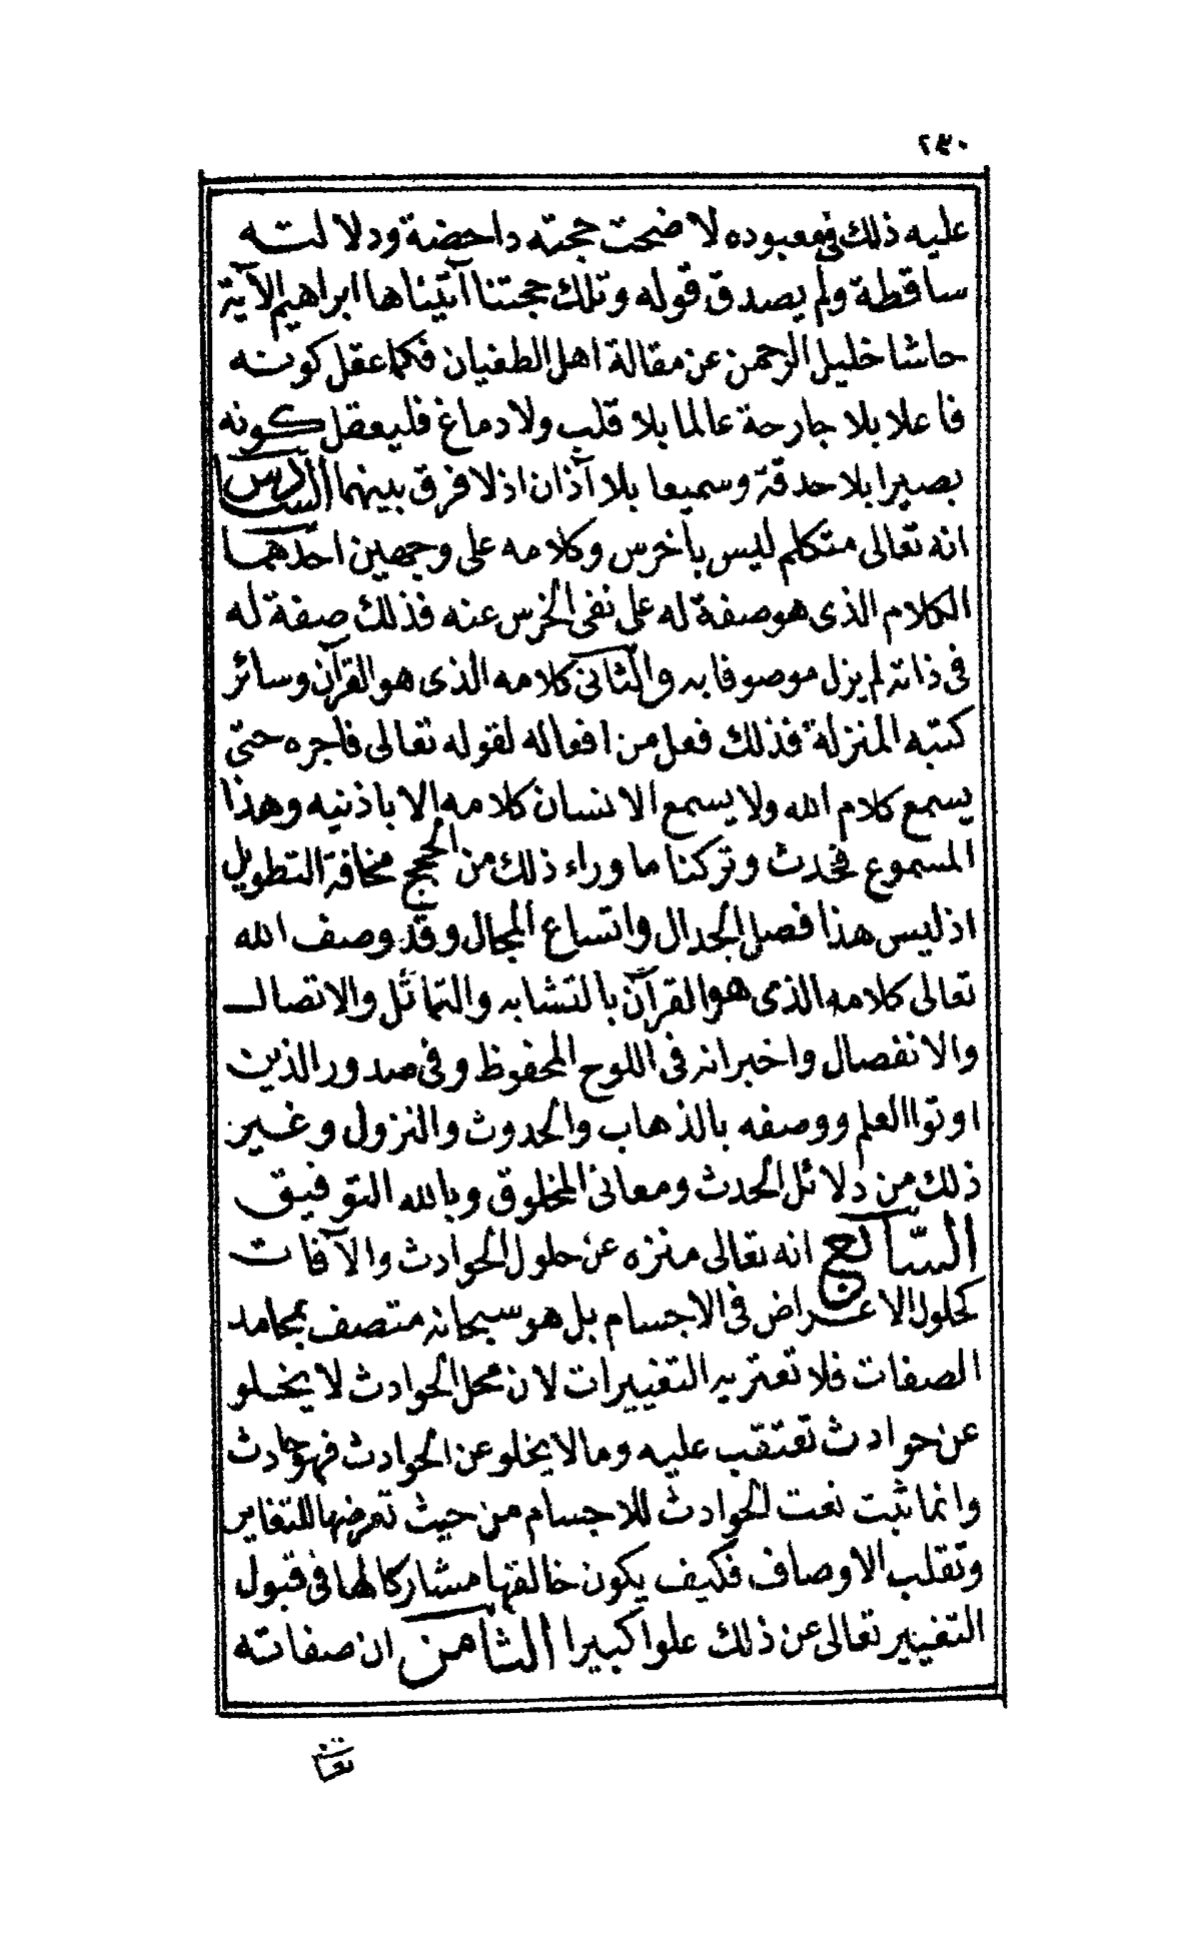 ٢٤٠
عليه ذلك في معبوده لاضحت حجته داحضة ودلالته
ساقطة ولم يصدق قوله وتلك حجتنا آتيناها ابراهيم الآية
حاشا خليل الرحمن عن مقالة اهل الطغيان فكما عقل كونه
فاعلا بلا جارحة عالما بلا قلب ولا دماغ فليعقل كونه
بصيرا بلا حدقة وسميعا بلا آذان اذ لا فرق بينهما السادس
انه تعالى متكلم ليس بأخرس وكلامه على وجهين احدهما
الكلام الذى هو صفة له على نفى الخرس عنه فذلك صفة له
فى ذاته لم يزل موصوفا به والثانى كلامه الذى هو القرآن وسائر
كتبه المنزلة فذلك فعل من افعاله لقوله تعالى فاجره حتى
يسمع كلام الله ولا يسمع الانسان كلامه الا باذنيه وهذا
المسموع محدث وتركنا ما وراء ذلك من الحجج مخافة التطويل
اذ ليس هذا فصل الجدال واتساع المجال وقد وصف الله
تعالى كلامه الذى هو القرآن بالتشابه والتماثل والاتصال
والانفصال واخبر انه فى اللوح المحفوظ وفى صدور الذين
اوتوا العلم ووصفه بالذهاب والحدوث والنزول وغير
ذلك من دلائل الحدث ومعانى المخلوق وبالله التوفيق
السابع انه تعالى منزه عن حلول الحوادث والآفات
كحلول الاعراض فى الاجسام بل هو سبحانه متصف بمحامد
الصفات فلا تعتريه التغييرات لان محل الحوادث لا يخلو
عن حوادث تعتقب عليه وما لا يخلو عن الحوادث فهو حادث
وانما ثبت نعت الحوادث للاجسام من حيث تعرضها للتغاير
وتقلب الاوصاف فكيف يكون خالقها مشاركا لها فى قبول
التغيير تعالى عن ذلك علوا كبيرا الثامن ان صفاته
تعا